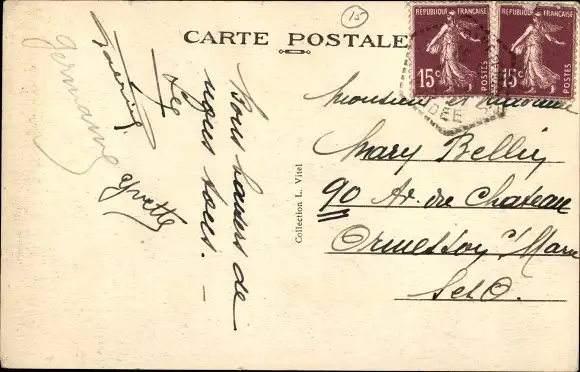 15
CARTE POSTALE
REPUBLIQUE FRANÇAISE
15c
POSTES
REPUBLIQUE FRANÇAISE
15c
POSTES
DÉE
Bons baisers de
nous tous.
Germaine
Yvette
Collection L. Vitel
Monsieur et Madame
Mary
90 Av. du Chateau
Ormesson s/ Marne
S et O.